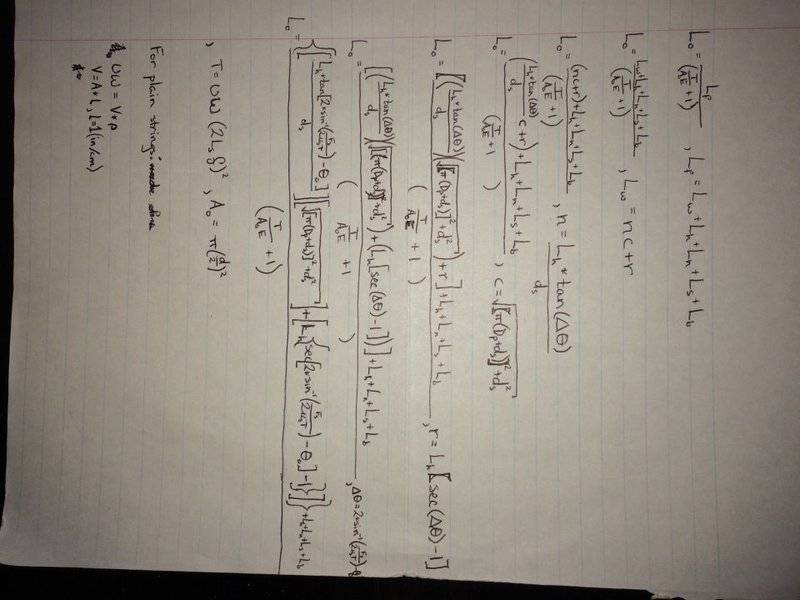 L₀ = Lp / (T/(A₀E) + 1) , Lp = Lw + Lh + Ln + Ls + Lb
L₀ = (Lw + Lh + Ln + Ls + Lb) / (T/(A₀E) + 1) , Lw = nc + r
L₀ = ((nc + r) + Lh + Ln + Ls + Lb) / (T/(A₀E) + 1) , n = Lh * tan(Δθ) / ds
L₀ = (((Lh * tan(Δθ)) / ds c + r) + Lh + Ln + Ls + Lb) / (T/(A₀E) + 1) , c = √([π(Dp + ds)]² + ds²)
L₀ = ([((Lh * tan(Δθ)) / ds)(√([π(Dp + ds)]² + ds²)) + r] + Lh + Ln + Ls + Lb) / (T/(A₀E) + 1) , r = Lh[sec(Δθ) - 1]
L₀ = ([((Lh * tan(Δθ)) / ds)(√([π(Dp + ds)]² + ds²)) + (Lh[sec(Δθ) - 1])] + Lh + Ln + Ls + Lb) / (T/(A₀E) + 1) , Δθ = 2 * sin⁻¹(
L₀ = {[(Lh * tan[2 * sin⁻¹( ) - θ₀]) / ds][√([π(Dp + ds)]² + ds²)] + [Lh{sec[2 * sin⁻¹( ) - θ₀] - 1}]} + Lh + Ln + Ls + Lb / (T/(A₀E) + 1)
, T = UW (2Ls f)² , A₀ = π(d/2)²
For plain strings:
UW = V * ρ
V = A * L, L = 1 (in/cm)